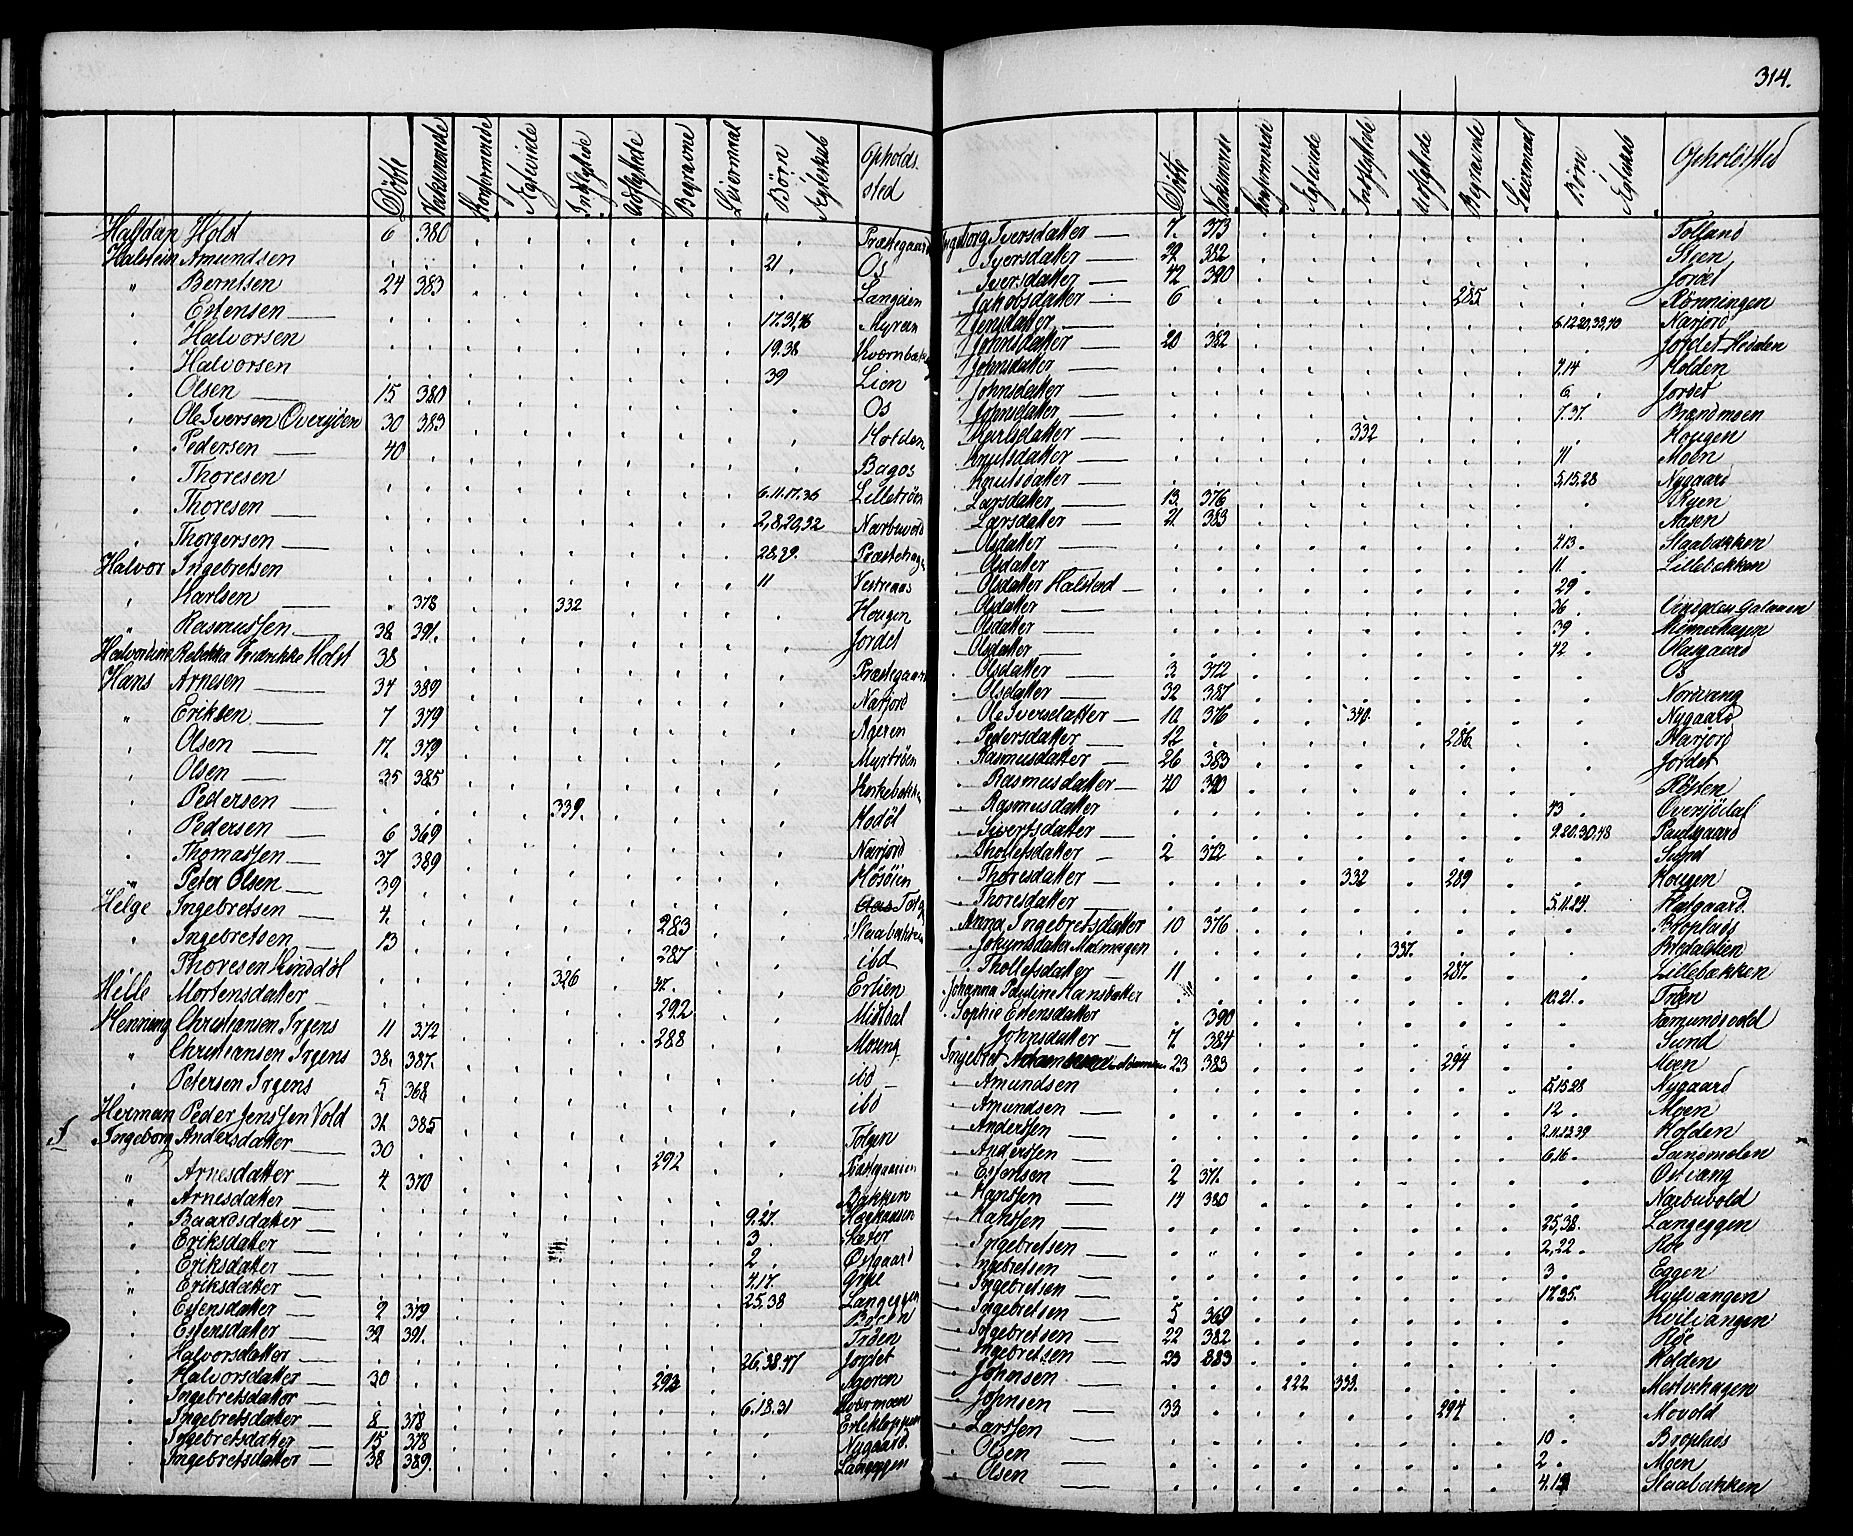 314.
Døbte Vakcinerede Konfirmerede Ægteviede Indflyttede Udflyttede Begravne Leiermaal Børn i Ægteskab Opholdssted
Halfdan Holst 6 380 Præstegaard
Halstein Amundsen 21 Os
" Berntsen 24 383 Langøien
Estensen 17.31,46 Myren
Halvorsen 19.38 Kvernbakk
Halvorsen 39 Lien
Olsen 15 380 Os
Ole Iversen Oversjøen 30 383 Holden
Pedersen 40 Bagos
Thoresen 6.11.17.36 Lilletrøen
Thoresen 2,8,20,32 Narbuvold
Thorgersen 28.29. Præstehage
Halvor Ingebretsen 11 Vestreaas
Karlsen 378 332 Hougen
" Rasmussen 38 391. Jordet
Halvardine Rebekka Fredrikke Holst 38 Præstegaard
Hans Arnesen 34 389 Narjord
" Eriksen 7 379 Ageren
Olsen 17. 379 Myrtrøen
Olsen 35 385 Kirkebakken
Pedersen 339. Hodøl
Pedersen 6 369 Narjord
Thomassen 37 389 Mosøien
" Peter Olsen 39 Tolg
Helge Ingebretsen 4. 283 Staabakken
Ingebretsen 13 287 ibd
Thoresen Kinddøl 326 47. Erlien
Hille Mortensdatter 292 Mistdal
Henning Christiansen Irgens 11 372 288 Moseng
" Christiansen Irgens 38. 387. ibd
Petersen Irgens 5 368 ibd
Herman Peder Jenssen Vold 31 385 Tolgen
I Ingeborg Andersdatter 30 292 Præstegaarden
" Arnesdatter 4 370 Bakken
" Arnesdatter 9.27. Haakaasen
Baardsdatter 3 Sæter
Eriksdatter 2 Østgaard
Eriksdatter 4.17. Grue
Eriksdatter 25.38 Langeggen
Estensdatter 2 379 Boren
Estensdatter 32 391. Trøen
Halvorsdatter 26.38.47 Jordet
Halvorsdatter 30 293 Ageren
Ingebretsdatter 6.18.31 Kvermoen
Ingebretsdatter 8 378 Erlekloppen
Ingebretsdatter 15 378 Nygaard
Ingebretsdatter 38 389. Langeggen
Døbte Vakcinerede Konfirmerede Ægteviede Indflyttede Udflyttede Begravne Leiermaal Børn i Ægteskab Opholdsted
Ingeborg Iversdatter 7. 373 Tolland
Iversdatter 29 382 Stien
Iversdatter 42 390 Jordet
Jakobsdatter 6 285 Rønningen
Jensdatter 6.12.20,32,40 Narjord
Johnsdatter 20 382 Jordet Heiden
Johnsdatter 7.14 Holden
Johnsdatter 6 Jordet
Johnsdatter 7.37. Brændmoen
Karlsdatter 332 Hougen
Knutsdatter 11 Moen
Knutsdatter 5,15.28 Nygaard
Larsdatter 13 376 Øgen
Larsdatter 21 383 Aasen
Olsdatter 4.13 Staabakken
Olsdatter 11. Lillebakken
Olsdatter Halsterd 29
Olsdatter 36 Galaaen
Olsdatter 39 Minnerhagen
Olsdatter 42 Olasgaard
Olsdatter 3 372 Os
Olsdatter 32 387 Nordvang
Ole Iversdatter 10 376 340. Nygaard
Pedersdatter 12 286 Narjord
Rasmusdatter 26 383 Jordet
Rasmusdatter 40 390 Røsten
Rasmusdatter 43 Oversjødal
Sivertsdatter 9.20.30.48 Paulgaard
Thollefsdatter 2 372 Sund
Thoresdatter 332 289 Hougen
Thoresdatter 5.11.24. Hafgaard
Anna Ingebretsdatter 10 376 Broplads
Jokumsdatter Malmagen 337. Bredalslien
Thollefsdatter 11 287. Lillebakken
Johanna Pauline Hansdatter 10.21. Trøen
Sophie Estensdatter 390 Fæmundsodd
Johnsdatter 7 384 Sund
Ingebret 23 383 294 Moen
Amundsen 5,15.28 Nygaard
Amundsen 12 Moen
Anderssen 2.11.23.39 Holden
Anderssen 6.16 Sandmoelen
Estensen 2 371. Østvang
Hanssen 14 380 Narbuvold
Hanssen 25,38. Langeggen
Ingebretsen 2,22 Roe
Ingebretsen 3 Eggen
Ingebretsen 17.35. Hvilvangen
Ingebretsen 5 369 Hvilvangen
Ingebretsen 22 382 Røe
Ingebretsen 23 383 Holden
Johnsen 222 333. Mestehagen
Johnsen 33 294 Movold
Larssen 10 Broplads
Olsen 2 Moen
Olsen 4.13 Staabakken